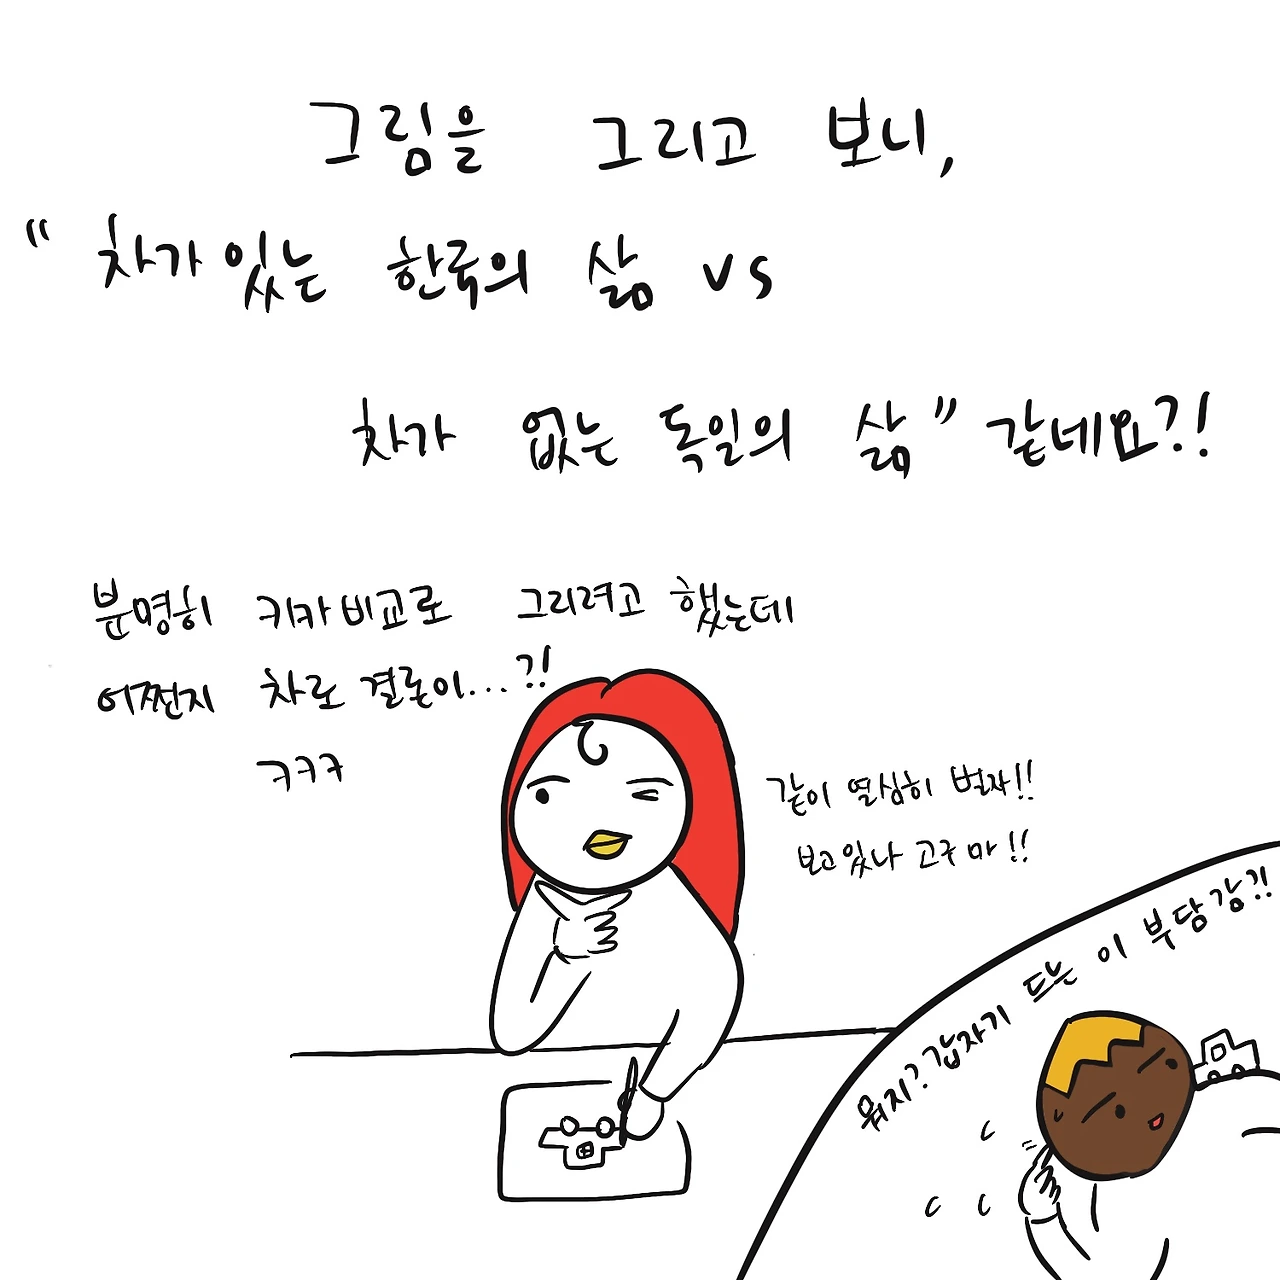 그림을 그리고 보니,
"차가있는 한국의 삶 vs
차가 없는 독일의 삶" 같네요?!
분명히 키카비교로 그리려고 했는데
어쩐지 차로 결론이...?!
ㅋㅋㅋ
같이 열심히 벌자!!
보고있나 고구마!!
뭐지? 갑자기 드는 이 부담감?!